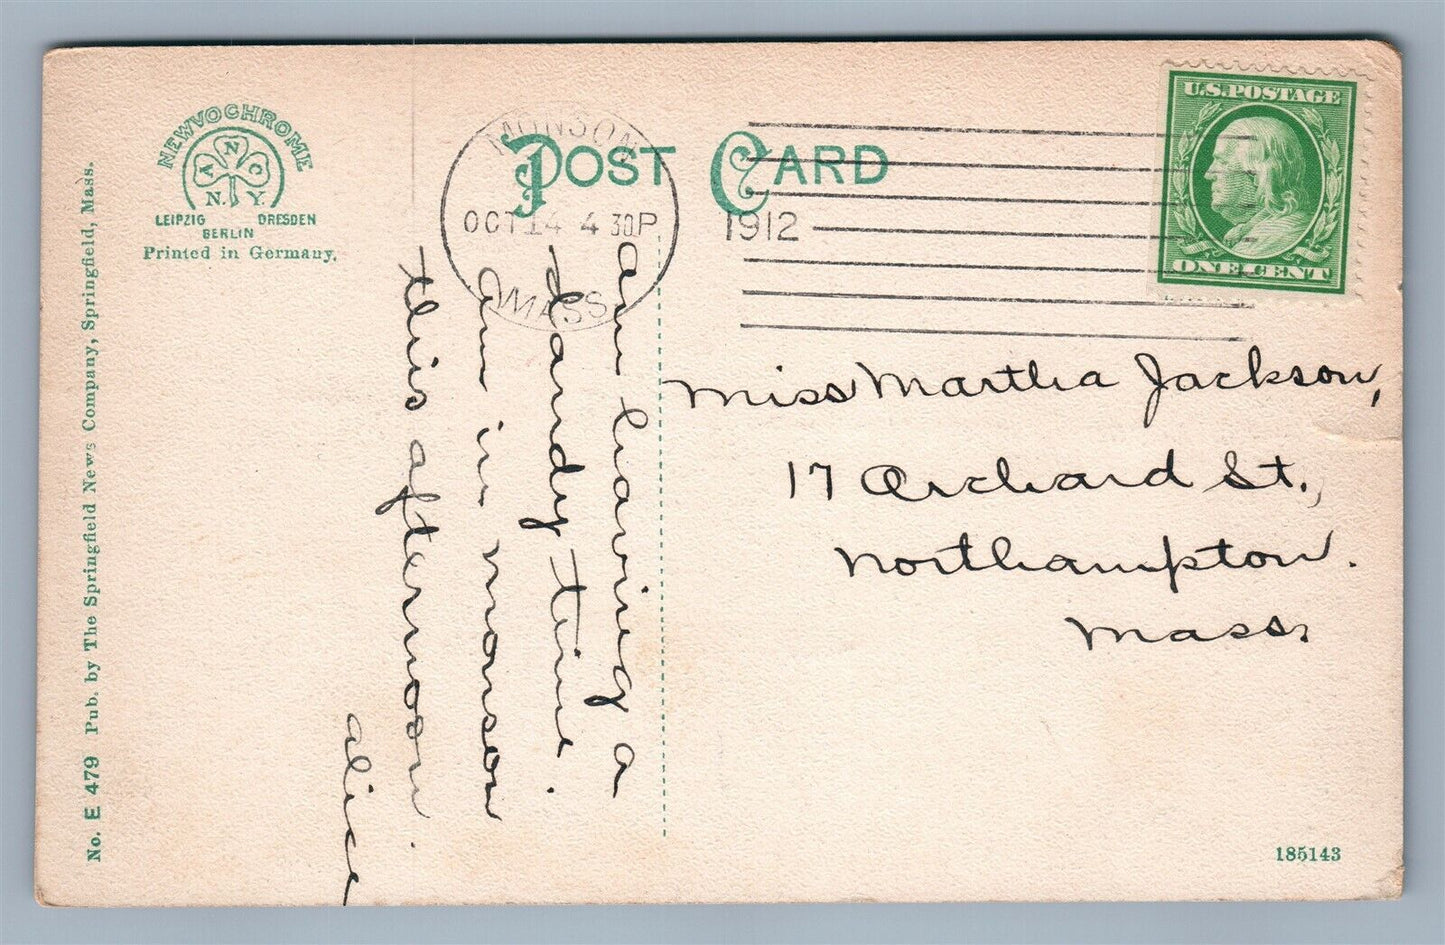 NEWVOCHROME
A N C
N. Y.
LEIPZIG DRESDEN
BERLIN
Printed in Germany.
No. E 479 Pub. by The Springfield News Company, Springfield, Mass.
POST CARD
MONSON
OCT 14 4 30P
1912
MASS
U.S. POSTAGE
ONE CENT
am having a
dandy time.
am in monson
this afternoon
alice
Miss Martha Jackson,
17 Orchard St.,
Northampton.
Mass.
185143